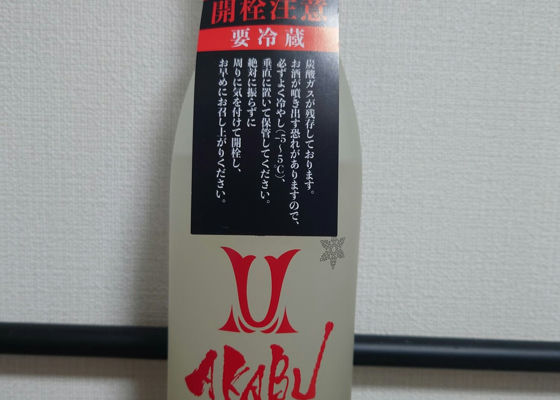 開栓注意
要冷蔵
炭酸ガスが残存しております。
お酒が噴き出す恐れがありますので、
必ずよく冷やし(-5~5℃)、
垂直に置いて保管してください。
絶対に振らずに
周りに気を付けて開栓し、
お早めにお召し上がりください。
AKABU